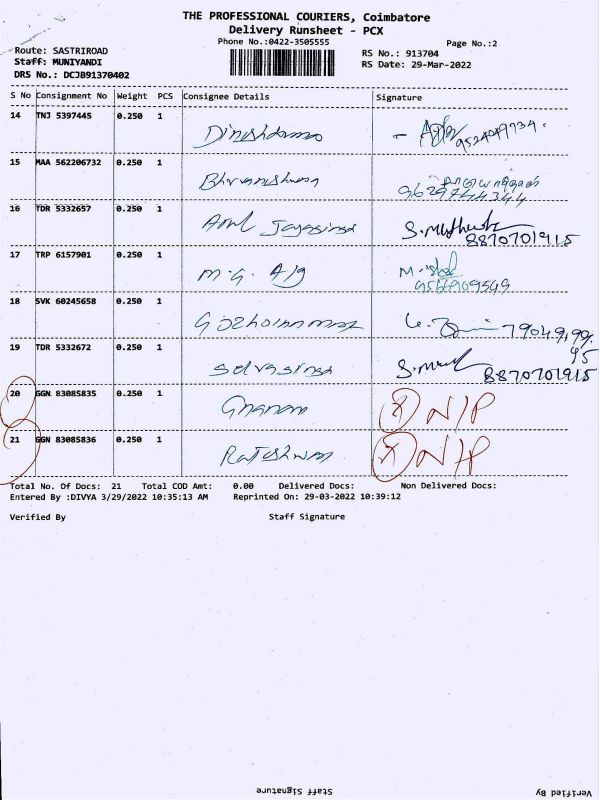 THE PROFESSIONAL COURIERS, Coimbatore
Delivery Runsheet - PCX
Phone No.:0422-3505555
Page No.:2
Route: SASTRIROAD
RS No.: 913704
Staff: MUNIYANDI
RS Date: 29-Mar-2022
DRS No.: DCJB91370402
S No Consignment No Weight PCS Consignee Details Signature
14 TNJ 5397445 0.250 1
15 MAA 562206732 0.250 1
9629744344
16 TDR 5332657 0.250 1 Arul Jayasinsa
8870701915
17 TRP 6157901 0.250 1 M.G.
9566909549
18 SVK 60245658 0.250 1
19 TDR 5332672 0.250 1 Selvasinsa
8870701915
20 GGN 83085835 0.250 1 Gnanam N/P
21 GGN 83085836 0.250 1 Rajeshwar N/P
Total No. Of Docs: 21 Total COD Amt: 0.00 Delivered Docs: Non Delivered Docs:
Entered By :DIVYA 3/29/2022 10:35:13 AM Reprinted On: 29-03-2022 10:39:12
Verified By Staff Signature
Staff Signature Verified By